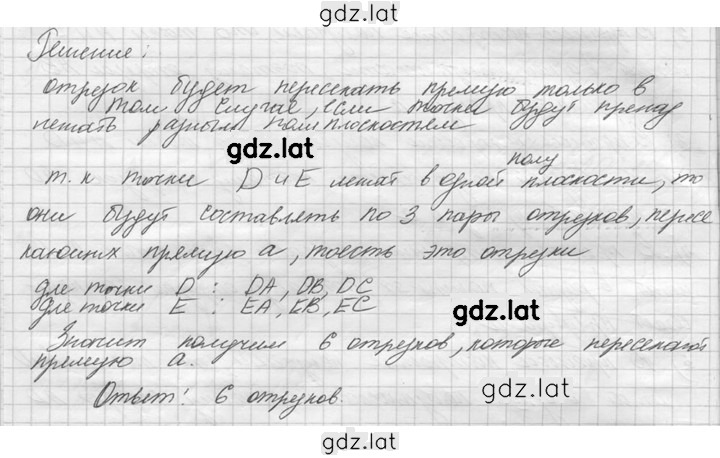 gdz.lat
Решение:
отрезок будет пересекать прямую только в
том случае, если точки будут принад
лежать разным полуплоскостям
gdz.lat
полу
т. к точки D и E лежат в одной плоскости, то
они будут составлять по 3 пары отрезков, пересе
кающих прямую a, тоесть это отрезки
для точки D : DA, DB, DC
для точки E : EA, EB, EC
gdz.lat
Значит получим 6 отрезков, которые пересекают
прямую a.
Ответ: 6 отрезков.
gdz.lat
gdz.lat